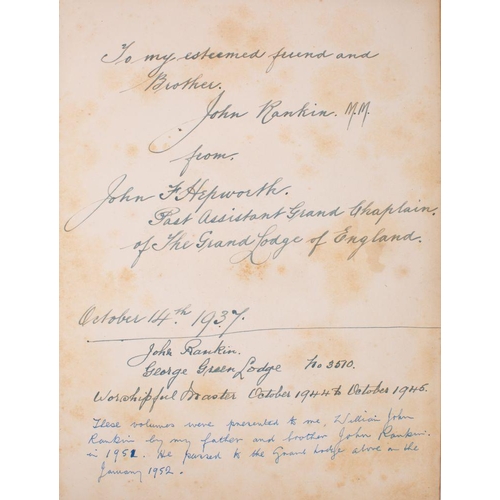 To my esteemed friend and
Brother.
John Rankin. M.M.
from.
John F Hepworth.
Past Assistant Grand Chaplain.
of The Grand Lodge of England.
October 14th 1937.
John Rankin.
George Green Lodge No 3510.
Worshipful Master October 1944 to October 1945.
These volumes were presented to me, William John
Rankin by my father and brother John Rankin.
in 1951. He passed to the Grand Lodge above on the
January 1952.